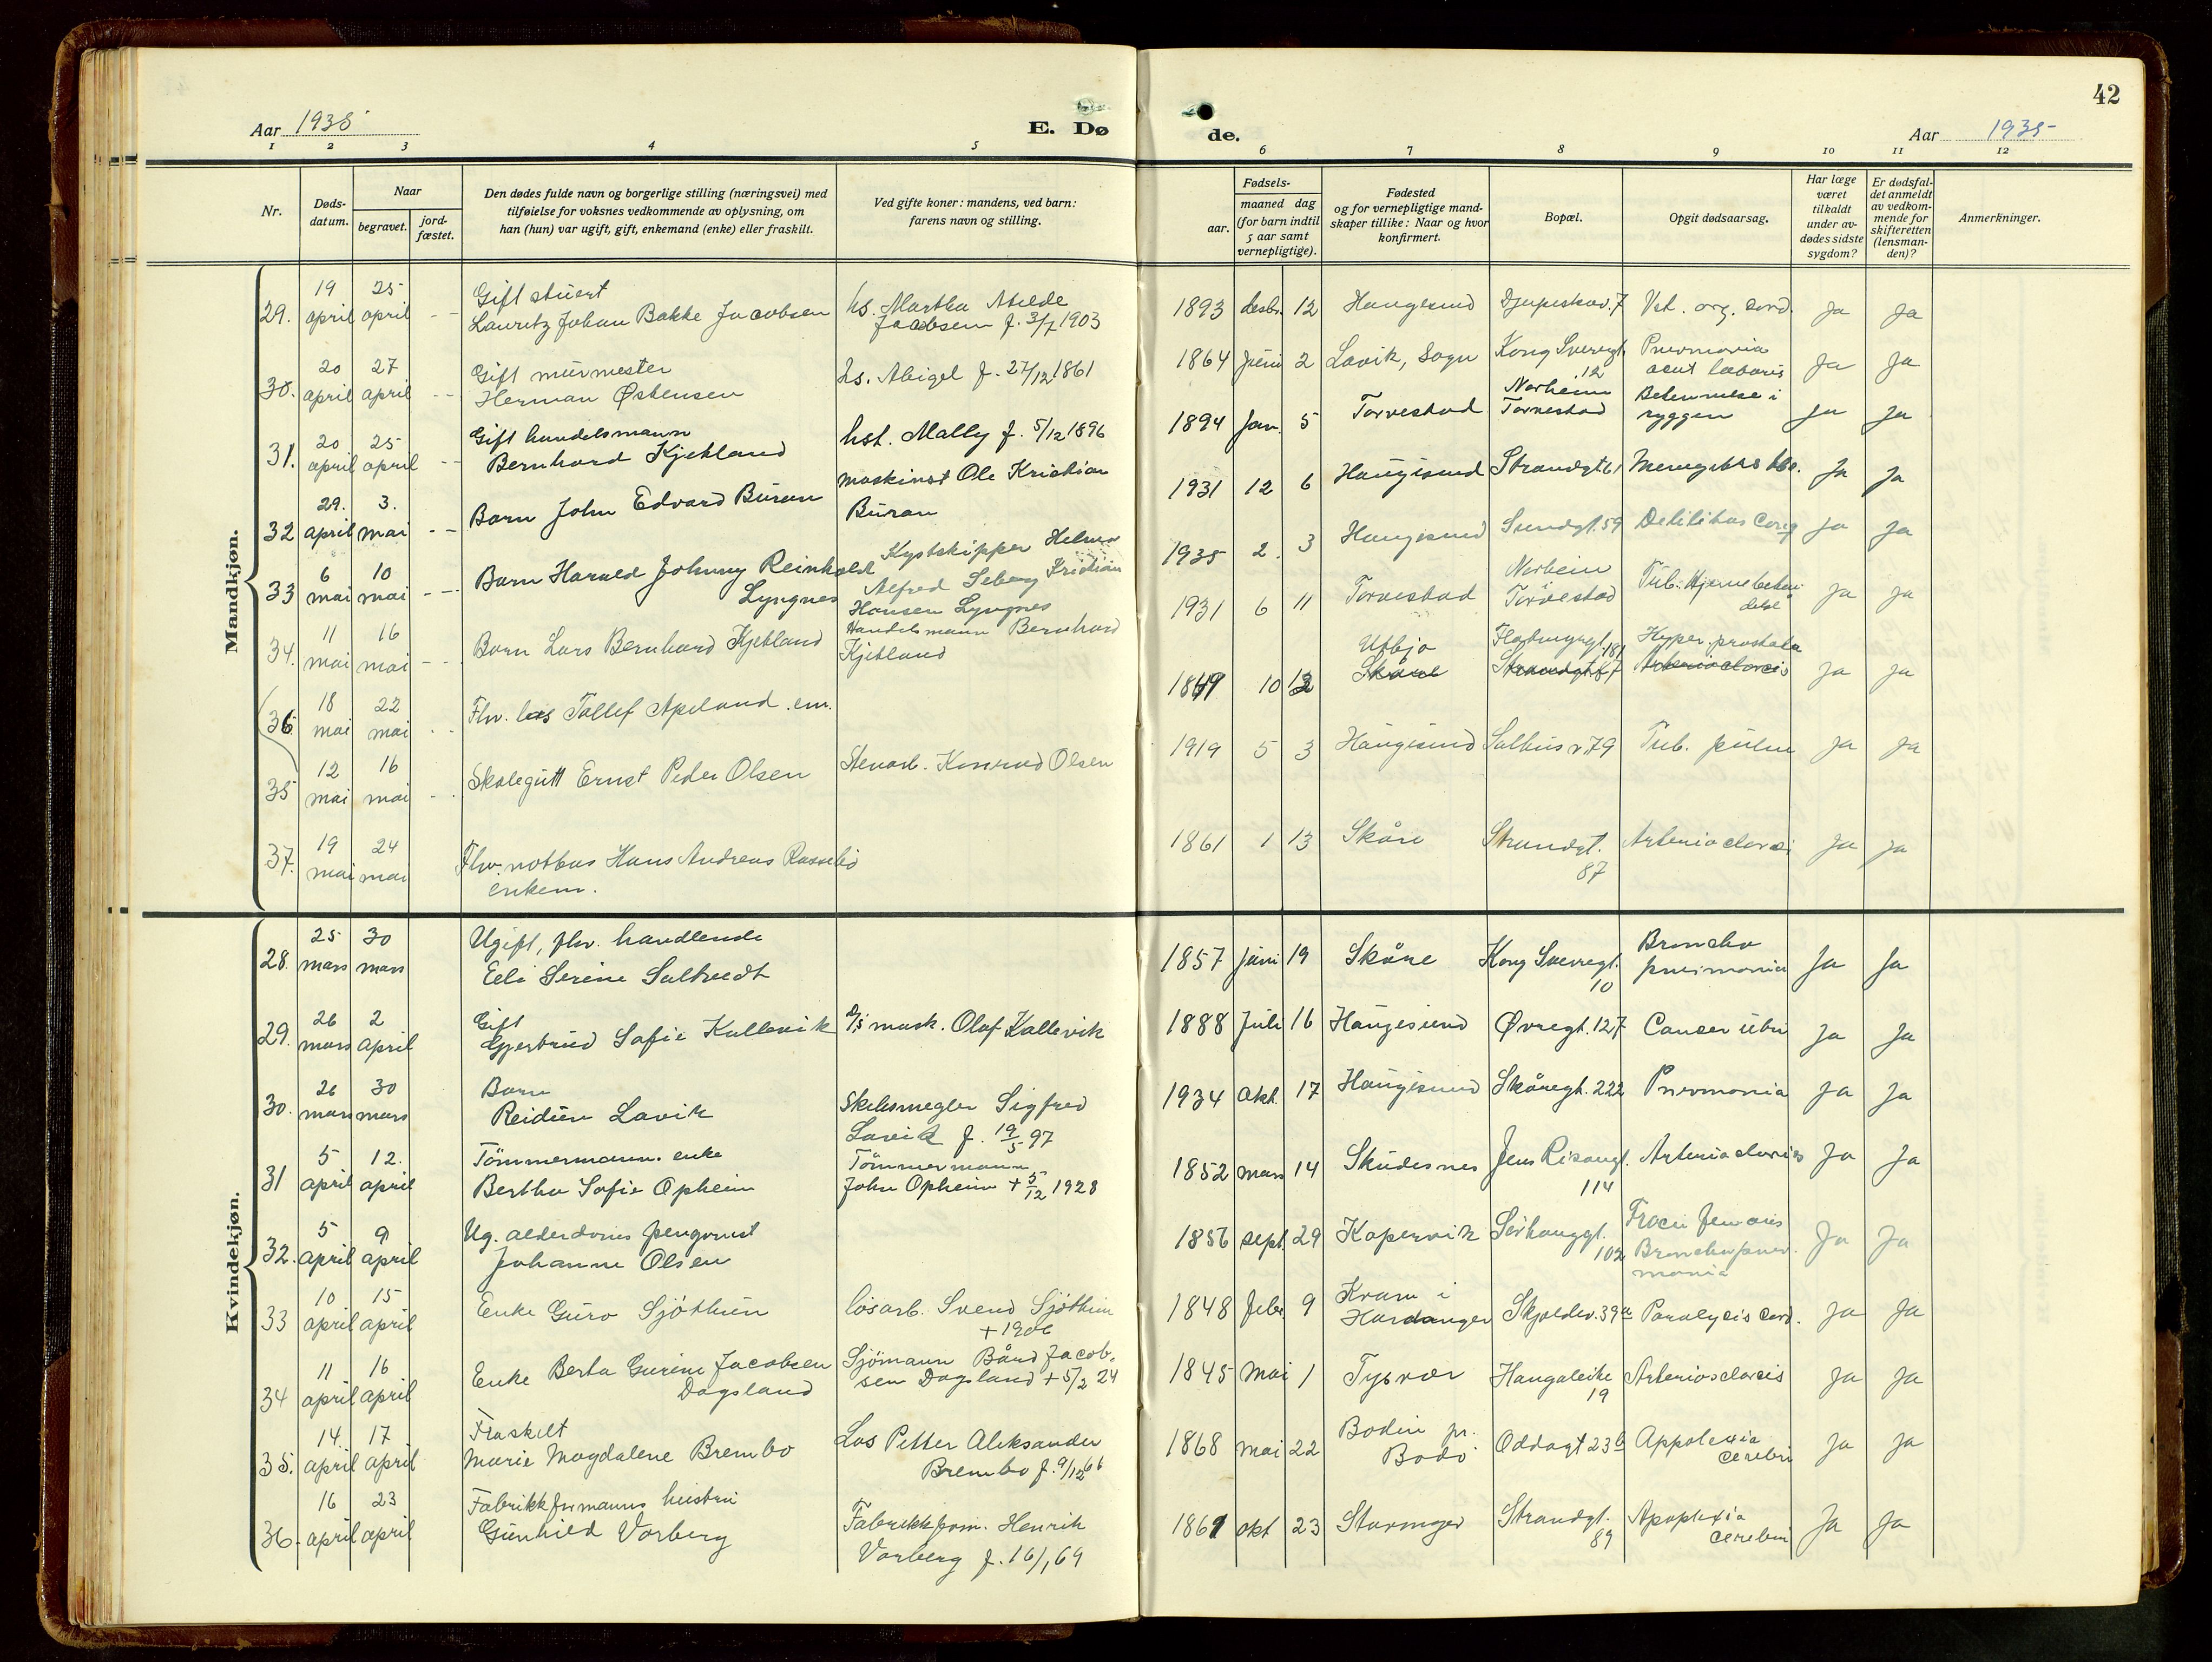 42
Aar 1935
E. Dø
de.
Aar 1935
1 2 3 4 5 6 7 8 9 10 11 12
Nr.
Døds-
datum.
Naar
begravet.
jord-
fæstet.
Den dødes fulde navn og borgerlige stilling (næringsvei) med
tilføielse for voksnes vedkommende av oplysning, om
han (hun) var ugift, gift, enkemand (enke) eller fraskilt.
Ved gifte koner: mandens, ved barn:
farens navn og stilling.
Fødsels-
aar.
maaned dag
(for barn indtil
5 aar samt
vernepligtige).
Fødested
og for vernepligtige mand-
skaper tillike: Naar og hvor
konfirmert.
Bopæl.
Opgit dødsaarsag.
Har læge
været
tilkaldt
under av-
dødes sidste
sygdom?
Er dødsfal-
det anmeldt
av vedkom-
mende for
skifteretten
(lensman-
den)?
Anmerkninger.
Mandkjøn.
29. 19 april 25 april - -
Gift stuert
Lauritz Johan Bakke Jacobsen
hs. Martha
Jacobsen f. 3/7 1903
1893 desbr. 12 Haugesund Djupeskov. 7 Vit. org. cord. Ja Ja
30. 20 april 27 april - -
Gift murmester
Herman Østensen
hs. Abigel f. 27/12 1861
1864 juni 2 Lavik, Sogn Kong Sverregt. 12
Pneumonia
acut
Ja Ja
31. 20 april 25 april - -
Gift handelsmann
Bernhard Kjetland
hst. Mally f. 5/12 1896
1894 Jan. 5 Torvestad Norheim
Torvestad
Betennelse i
ryggen
Ja Ja
32 29. april 3. mai - -
Barn John Edvard Buran
maskinist Ole Kristian
Buran
1931 12 6 Haugesund Strandgt 61 Ja Ja
33 6 mai 10 mai - -
Barn Harald Johnny Reinholdt
Lyngnes
Kystskipper Helmer
Alfred Seberg Kristian
Hansen Lyngnes
1935 2. 3 Haugesund Sundgt. 59 Ja Ja
34. 11 mai 16 mai - -
Barn Lars Bernhard Kjetland
Handelsmann Bernhard
Kjetland
1931 6 11 Torvestad Norheim
i
Torvestad
Tub. Hjernebeten
delse
Ja Ja
36 18 mai 22 mai - -
Flv. los Tollef Apeland. em.
1849 10 12 Utbjo
Skåne
Flotmyrgt. 181
Strandgt 87
Hyper. prostata
Arteriosclerosis
Ja Ja
35 12 mai 16 mai - -
Skolegutt Ernst Peder Olsen
Stenarb. Konrad Olsen
1919 5 3 Haugesund Salhusv. 79 Tub. pulm Ja Ja
37. 19 mai 24 mai
Flv. notbas Hans Andreas Rossebø
enkem.
1861 1 13 Skåre Strandgt.
87
Arteriosclerosi Ja Ja
Kvindekjøn.
28. 25 mars 30 mars
Ugift, flv. handlende
Eeli Serine Saltvedt
1857 juni 19 Skåne Kong Sverregt.
10
Broncho
pneumonia
Ja Ja
29. 26 mars 2 april
Gift
Gjertrud Sofie Kallevik
D/s mask. Olaf Kallevik
1888 Juli 16 Haugesund Øvregt. 127 Cancer uteri Ja Ja
30. 26 mars 30 mars
Barn
Reidun Lavik
Skibsmegler Sigfred
Lavik f. 19/5 97
1934 Okt. 17 Haugesund Skåregt. 222 Pnevmonia Ja Ja
31 5 april 12. april
Tömmermann. enke
Bertha Sofie Opheim
Tömmermann
John Opheim + 5/12 1928
1852 mars 14 Skudesnes Jens Risøengt.
114
Arteriosclerosis Ja Ja
32. 5 april 9 april
Ug. alderdoms pengenst
Johanne Olsen
1856 sept. 29 Kopervik Sørhauggt.
102
Fract femoris
Bronchopnev.
monia
Ja Ja
33 10 april 15 april
Enke Guro Sjöthun
lösarb. Svend Sjöthun
+ 1906
1848 febr. 9 Kvam i
Hardanger
Skjoldev. 39a Paralysis cord. Ja Ja
34 11 april 16 april
Enke Berta Gurine Jacobsen
Dagsland
Sjömann Bård Jacob.
sen Dagsland + 5/2 24
1845 mai 1 Tysvær Haugaleite
19
Arteriosclerosis Ja Ja
35. 14. april 17 april
Fraskilt
Marie Magdalene Brembo
Los Petter Aleksander
Brembo f. 9/12 66
1868 mai 22 Bodin pr.
Bodö
Oddagt 23b Appolexia
cerebri
Ja Ja
36. 16 april 23 april
Fabrikkformanns hustru
Gunhild Varberg
Fabrikkform. Henrik
Varberg f. 16/1 69
1861 okt 23 Stavanger Strandgt.
89
Apoplexia
cerebri
Ja Ja